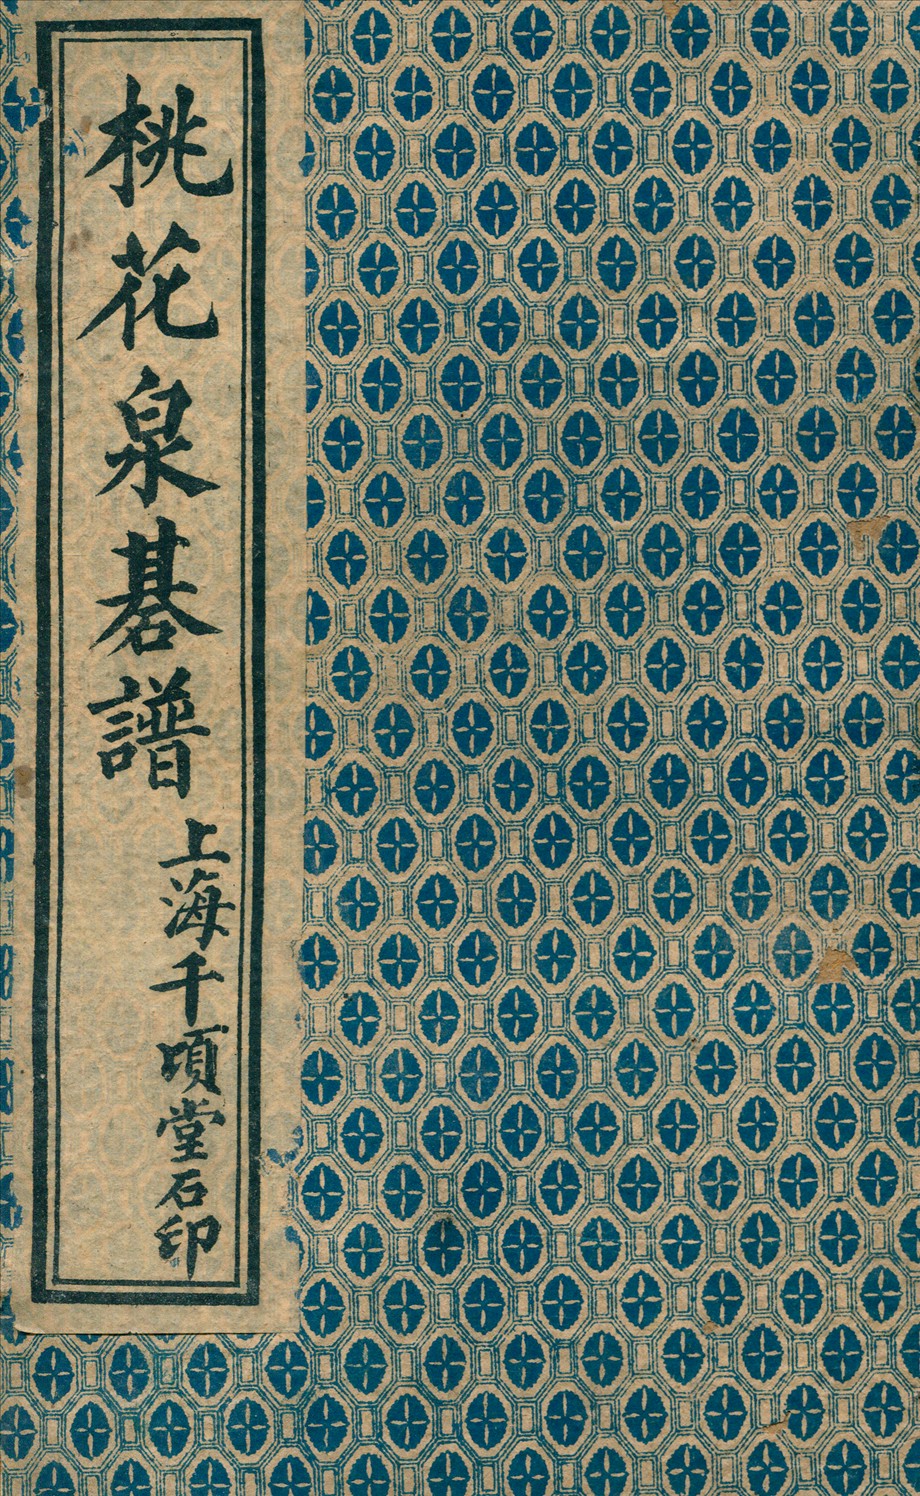 桃花泉碁譜
上海千頃堂石印